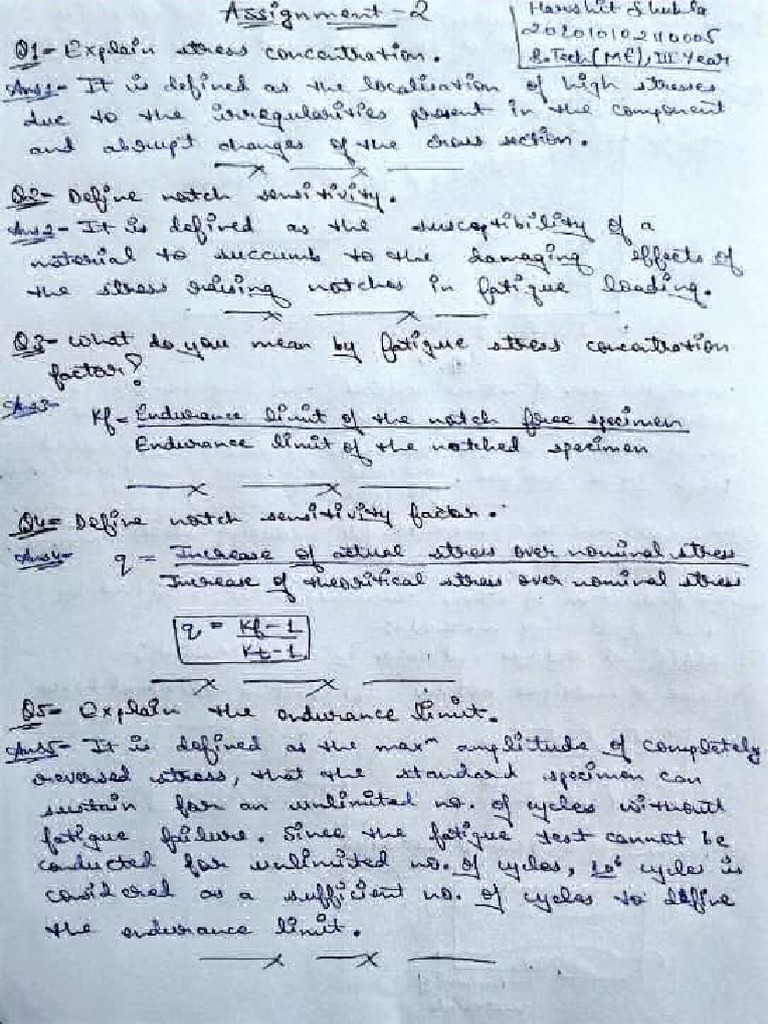 Assignment-2
Harshit Shukla
202010102110005
B.Tech(ME), III Year
Q1- Explain stress concentration.
Ans1- It is defined as the localisation of high stresses
due to the irregularities present in the component
and abrupt changes of the cross section.
Q2- Define notch sensitivity.
Ans2- It is defined as the susceptibility of a
material to succumb to the damaging effects of
the stress raising notches in fatigue loading.
Q3- What do you mean by fatigue stress concentration
factor?
Ans3-
Kf = Endurance limit of the notch free specimen
Endurance limit of the notched specimen
Q4- Define notch sensitivity factor.
Ans4- q = Increase of actual stress over nominal stress
Increase of theoritical stress over nominal stress
q = Kf-1
Kt-1
Q5- Explain the endurance limit.
Ans5- It is defined as the maxᵐ amplitude of completely
reversed stress, that the standard specimen can
sustain for an unlimited no. of cycles without
fatigue failure. Since the fatigue test cannot be
conducted for unlimited no. of cycles, 10⁶ cycles is
considered as a sufficient no. of cycles to define
the endurance limit.